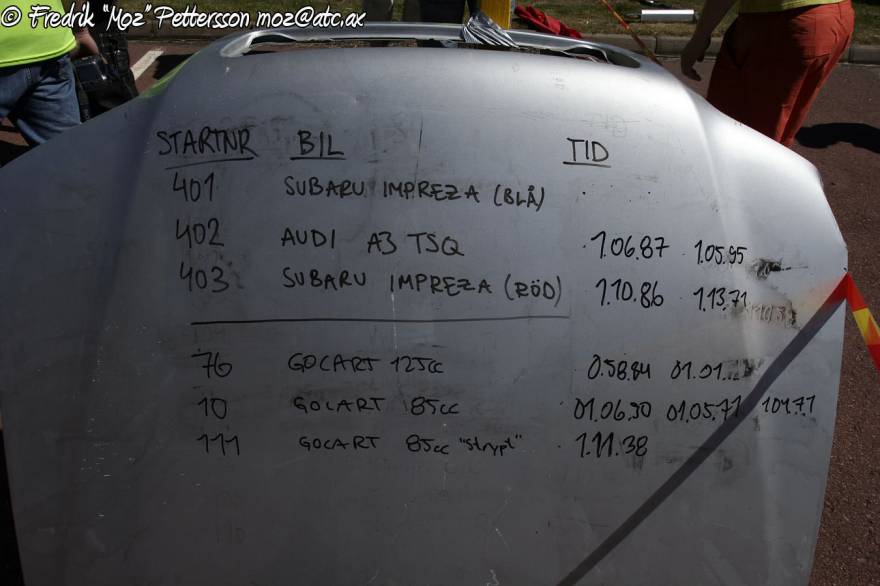 © Fredrik "Moz" Pettersson moz@atc.ax
STARTNR BIL TID
401 SUBARU IMPREZA (BLÅ)
402 AUDI A3 TSQ 1.06.87 1.05.95
403 SUBARU IMPREZA (RÖD) 1.10.86 1.13.71
76 GOCART 125cc 0.58.84 01.01
10 GOCART 85cc 01.06.90 01.05.71 1.04.71
111 GOCART 85cc "strypt" 1.11.38